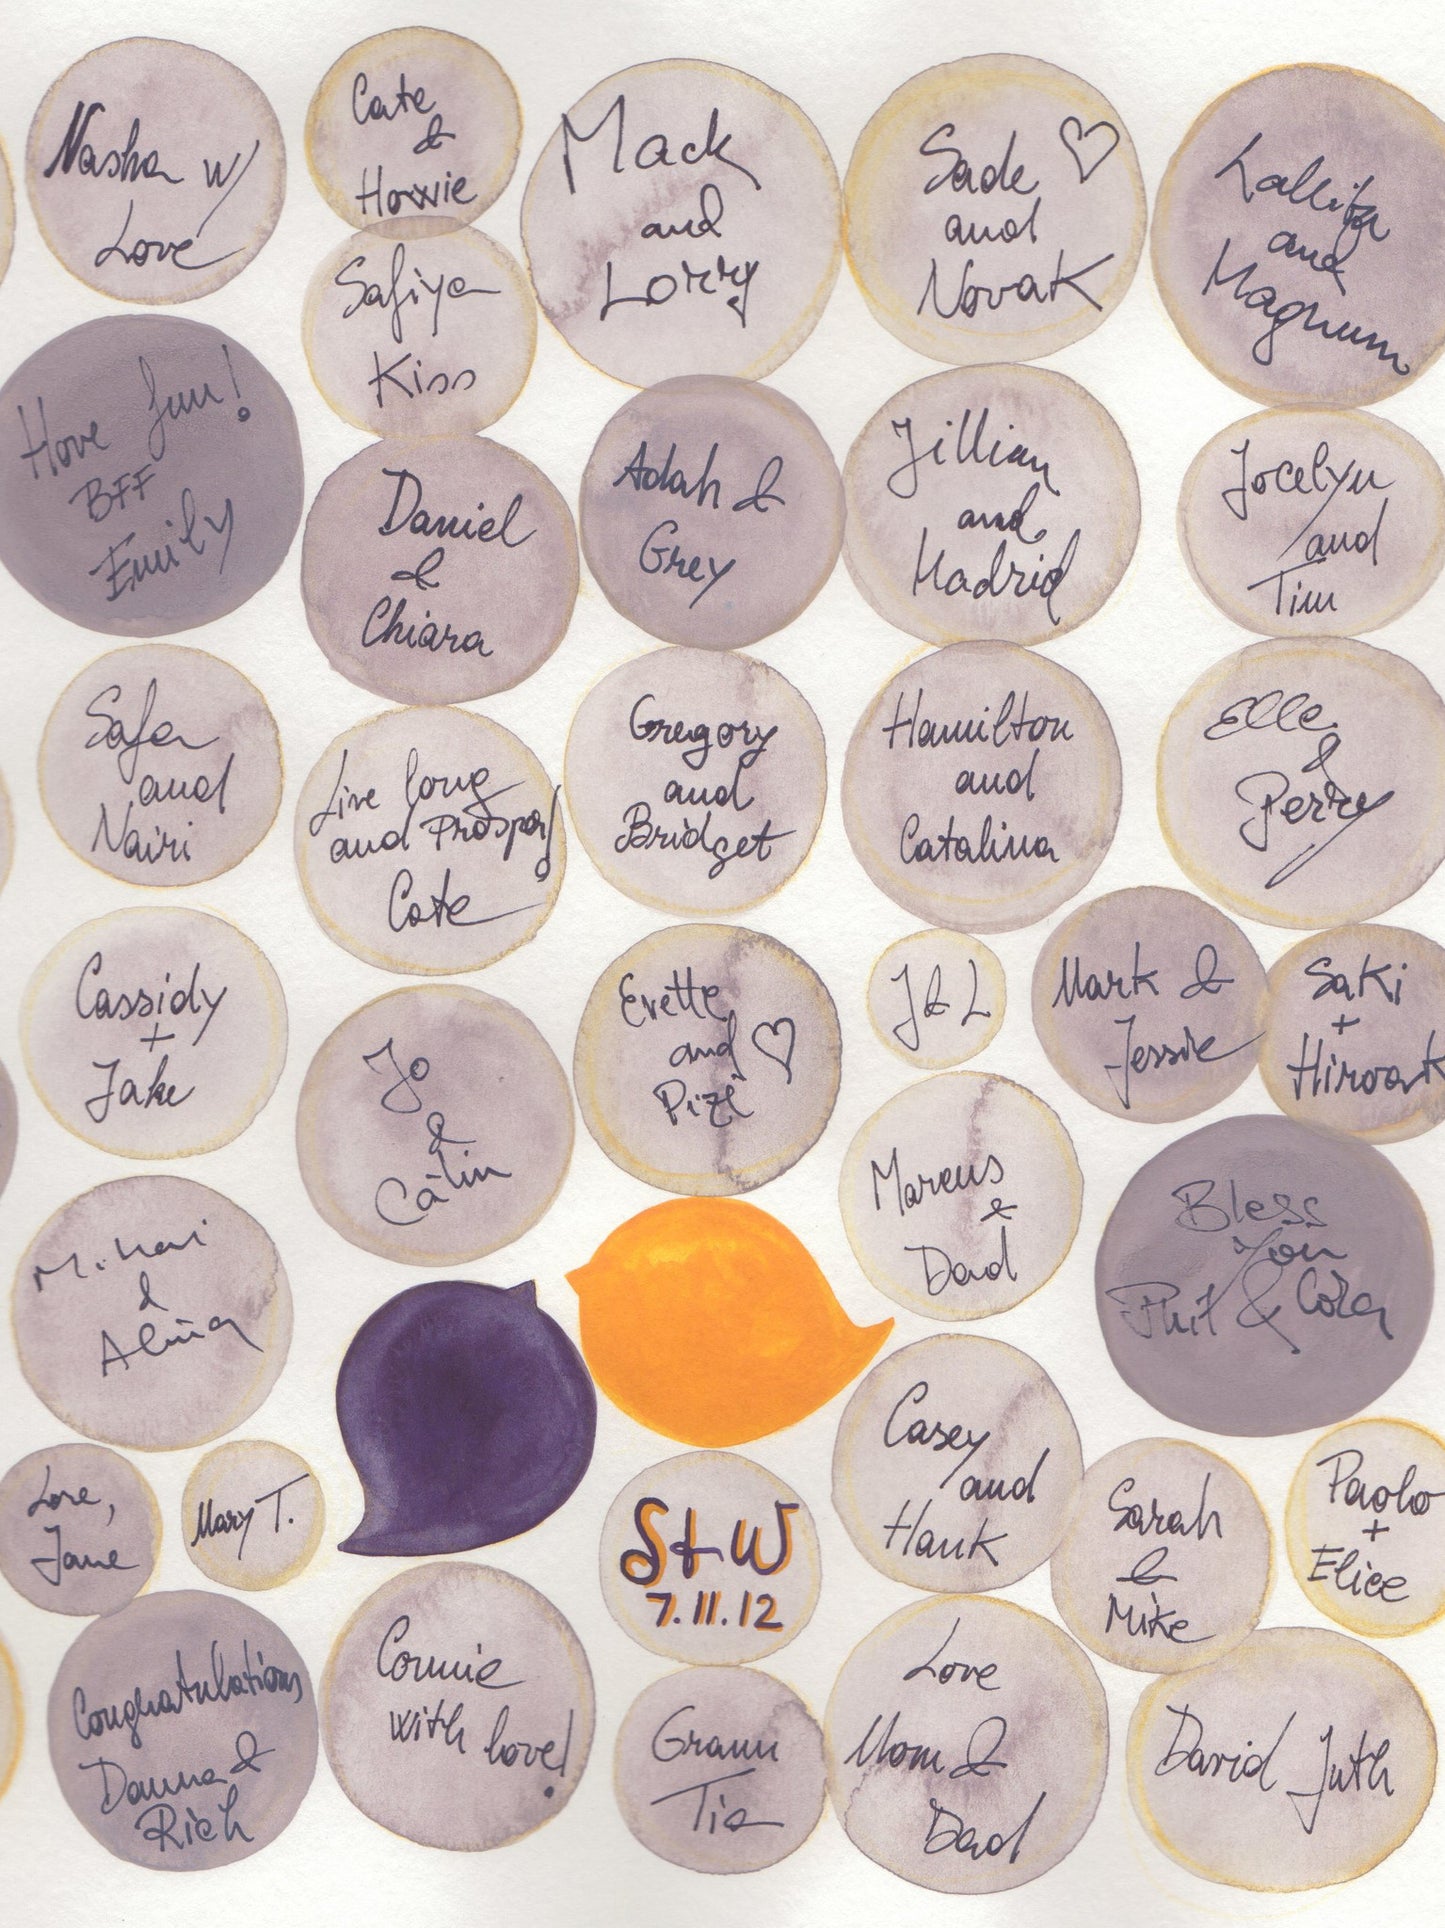 Nasha w/
Love
Cate
&
Howie
Mack
and
Lorry
Sade
and
Novak
Lallita
and
Magnum
Safiya
Kiss
Have fun!
BFF
Emily
Daniel
&
Chiara
Adah &
Grey
Jillian
and
Madrid
Jocelyn
and
Tim
Safa
and
Nairi
Live long
and Prosper
Cate
Gregory
and
Bridget
Hamilton
and
Catalina
Elle
&
Perry
Cassidy
+
Jake
Jo
&
Călin
Evette
and
J & L
Mark &
Jessie
Saki
+
Marcus
&
Dad
Mihai
&
Alina
Bless
You
Phil & Cora
Casey
and
Hank
Love,
Jane
Mary T.
S+W
7.11.12
Sarah
&
Mike
Paolo
+
Elice
Congratulations
Danna &
Rich
Connie
with love!
Grann
Tia
Love
Mom &
Dad
David Juth